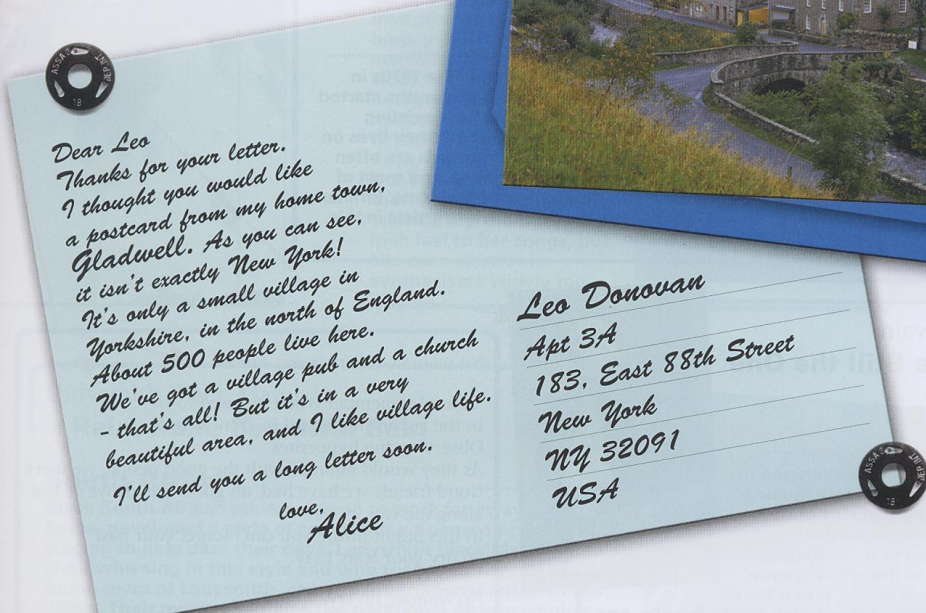 Dear Leo
Thanks for your letter.
I thought you would like
a postcard from my home town,
Gladwell. As you can see,
it isn't exactly New York!
It's only a small village in
Yorkshire, in the north of England.
About 500 people live here.
We've got a village pub and a church
- that's all! But it's in a very
beautiful area, and I like village life.
I'll send you a long letter soon.
love,
Alice
Leo Donovan
Apt 3A
183, East 88th Street
New York
NY 32091
USA